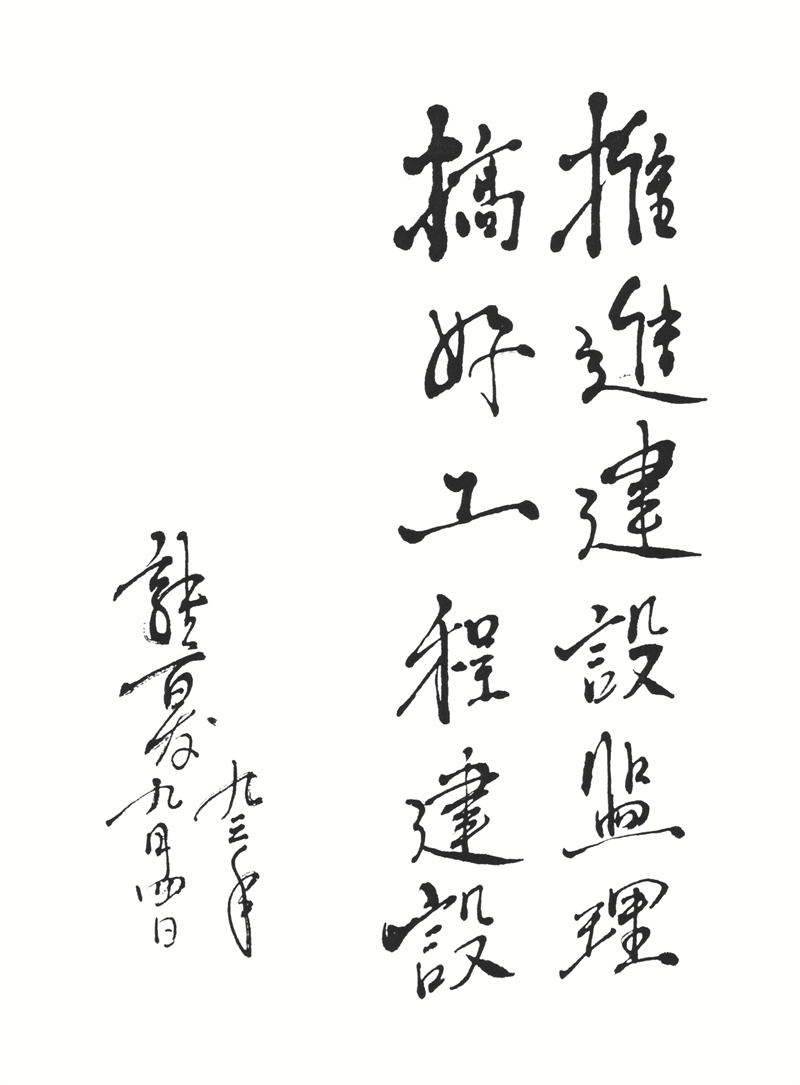 推進建設監理
搞好工程建設
九三年
張百发九月四日